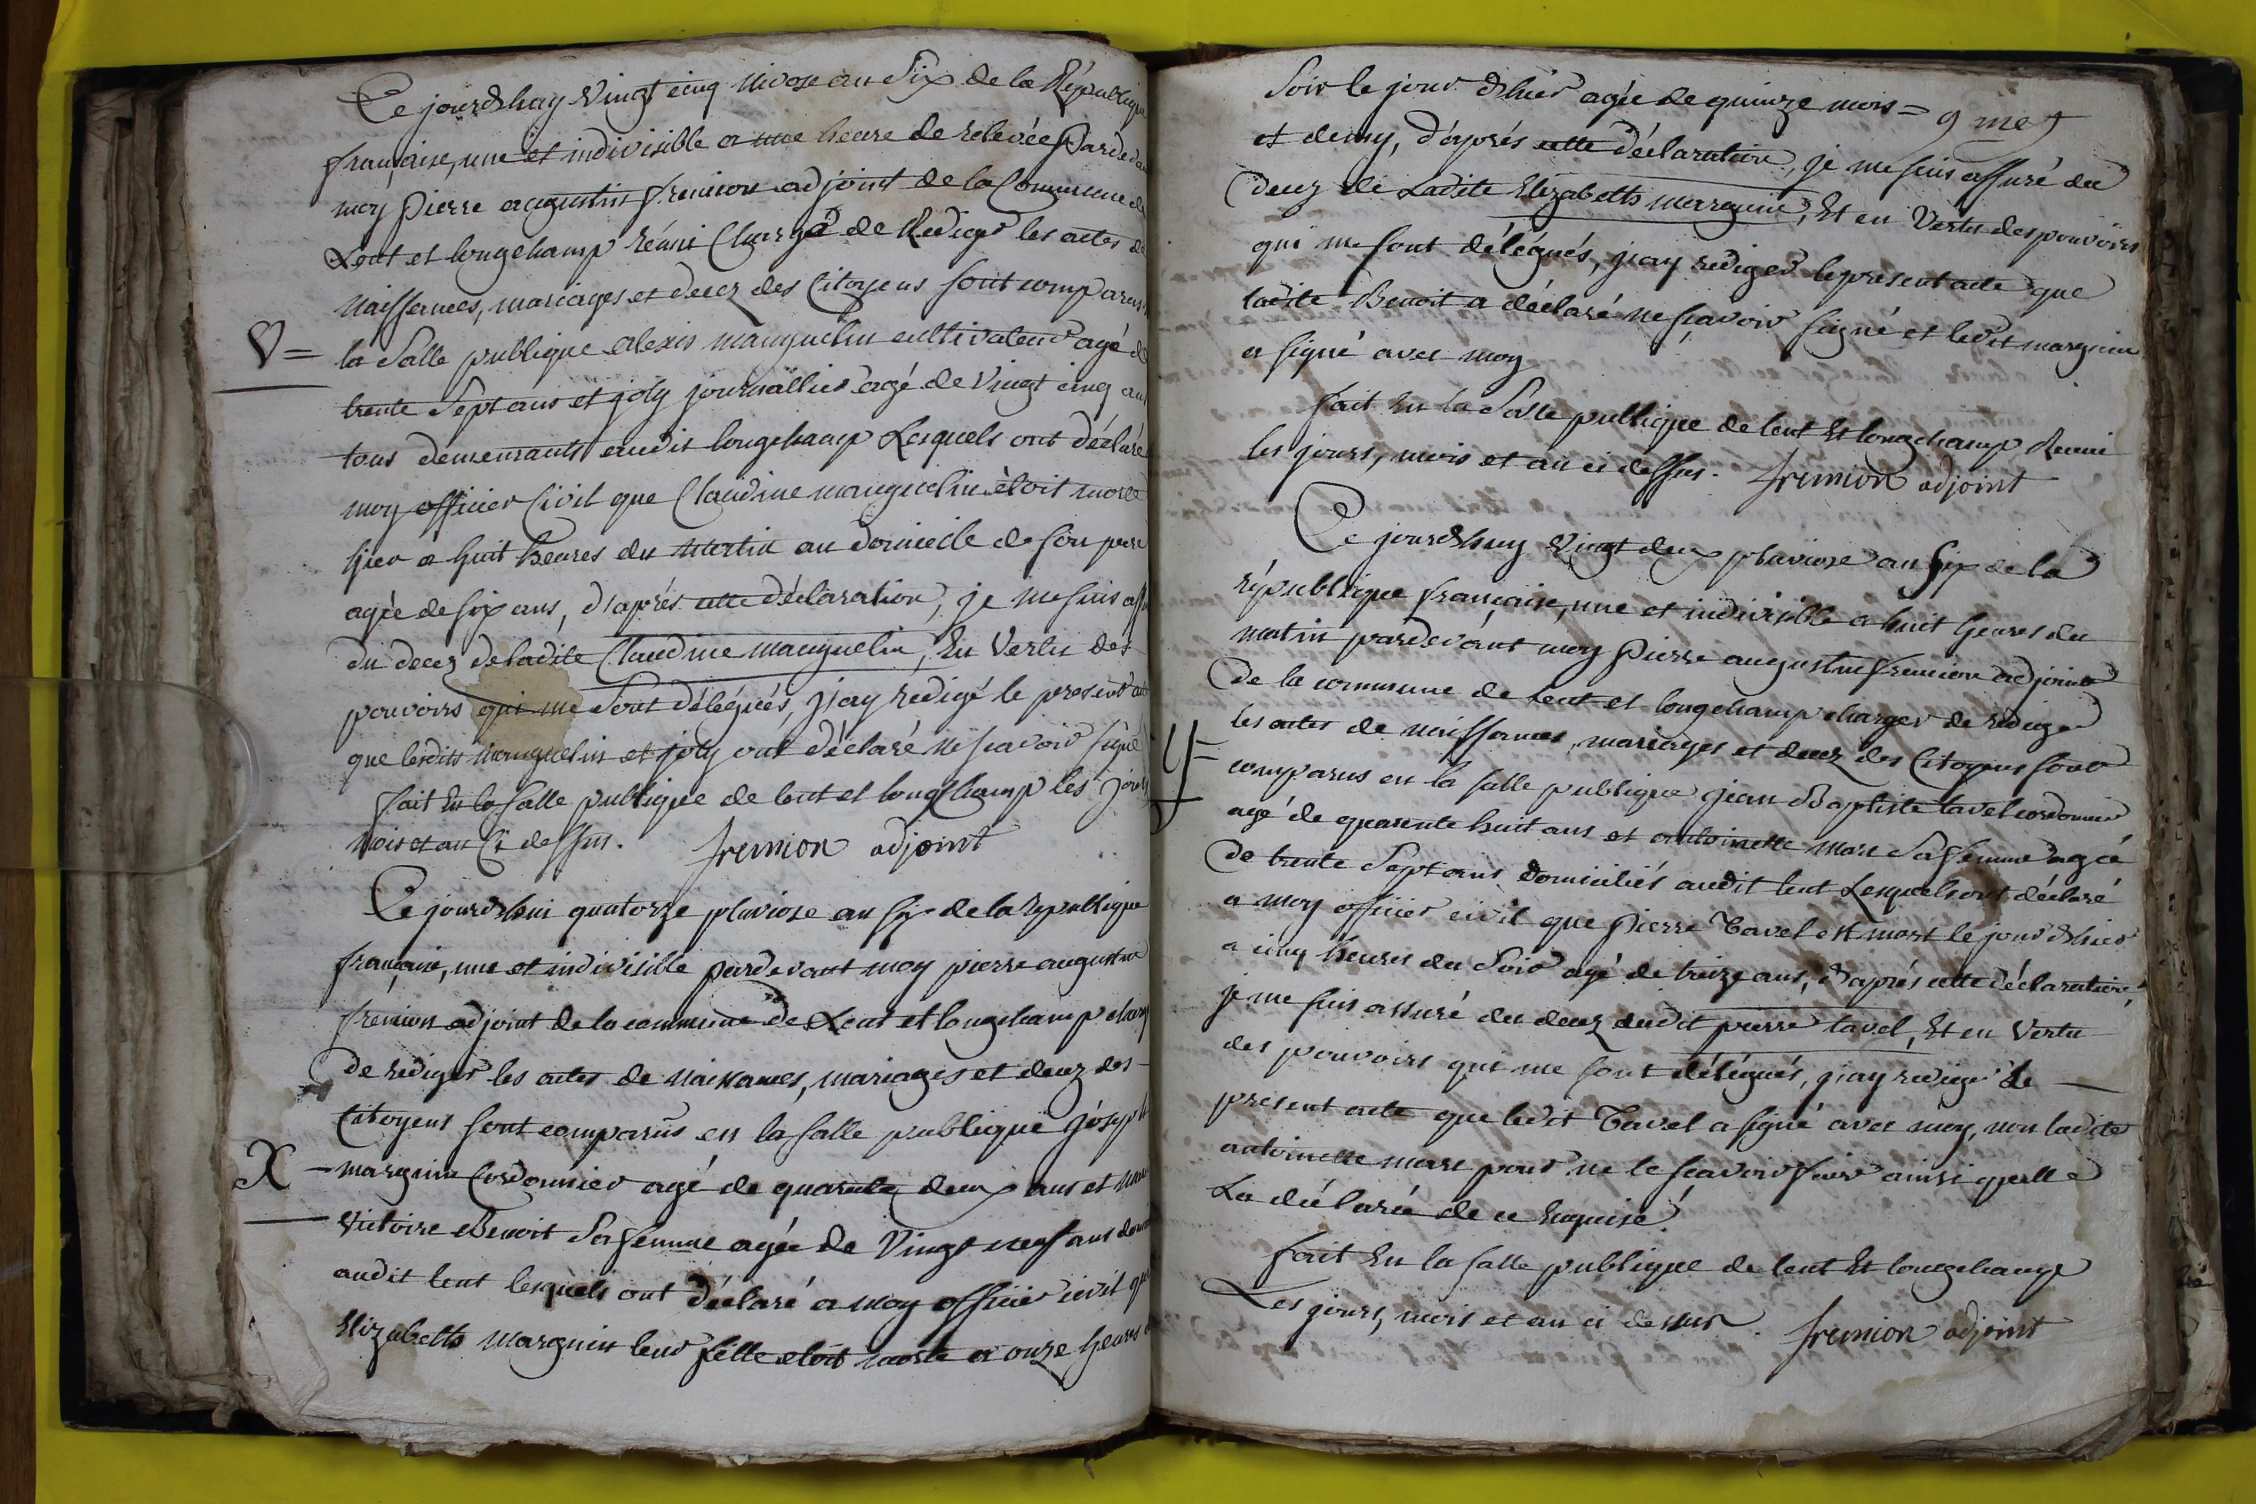 Ce jourdhuy Vingt cinq Nivose an Six de la République
française, une et indivisible a une heure de relevée Pardeva
moy Pierre augustin fremion adjoint de la Commune de
Lent et longchamp réuni Chargé de Rediger les actes de
Naissances, mariages et decez des Citoyens sont comparus
V = la Salle publique alexis mauguelin cultivateur agé de
trente Sept ans et joly journallier agé de Vingt cinq ans
tous demeurants audit longchamp Lesquels ont déclaré
moy officier Civil que Claudine mauguelin étoit morte
hier a huit heures du Matin au domicile de son pere
agée de six ans, d'aprés cette déclaration, je me suis assu
du decez de ladite Claudine mauguelin, En Vertu des
pouvoirs qui me Sont délégués, j'ay rédigé le present act
que lesdits Mauguelin et joly ont déclaré ne sçavoir signé
fait En la salle publique de lent et longchamp les jours
mois et an Ci dessus. fremion adjoint
Ce jourdhui quatorze pluviose an six de la republique
française, une et indivisible pardevant moy pierre augustin
fremion adjoint de la commune de Lent et longchamp charg
de rediger les actes de Naissances, mariages et decez des
Citoyens sont comparus en la salle publique joseph
X - marguin Cordonnier agé de quarante deux ans et Marie
Victoire Benoit Sa femme agée de Vingt neuf ans dem
audit lent lesquels ont déclaré a moy officier civil que
Elizabeth Marguin leur fille etoit morte a onze heures d
Soir le jour d'hier agée de quinze mois = 9 me
et demy, d'aprés cette déclaration, je me suis assuré du
decez de Ladite Elizabeth marguin, Et en Vertu des pouvoirs
qui me sont délégués, j'ay rediger le present acte que
ladite Benoit a déclaré ne sçavoir signé et ledit marguin
a signé avec moy
fait En la Salle publique de lent Et longchamp Reuni
les jours, mois et an ci dessus. fremion adjoint
Ce jourdhuy Vingt deux pluviose an Six de la
république française, une et indivisible a huit heures du
matin pardevant moy Pierre augustin fremion adjoint
de la commune de Lent et longchamp charger de rédiger
les actes de naissances, mariages et decez des Citoyens sont
Y = comparus en la salle publique jean Baptiste tavel cordonnier
agé de quarente huit ans et antoinette More Sa femme agée
de trente Sept ans domiciliés audit lent Lesquels ont déclaré
a moy officier civil que Pierre Tavel est mort le jour d'hier
a cinq heures du Soir agé de treize ans, d'aprés cette déclaration,
je me suis assuré du decez dudit pierre tavel, Et en Vertu
des pouvoirs qui me sont délégués, j'ay rediger le
present acte que ledit Tavel a signé avec moy, non ladite
antoinette more pour ne le sçavoir faire ainsi quelle
La déclarée de ce Enquise.
fait En la salle publique de lent Et longchamp
Les jours, mois et an ci dessus. fremion adjoint